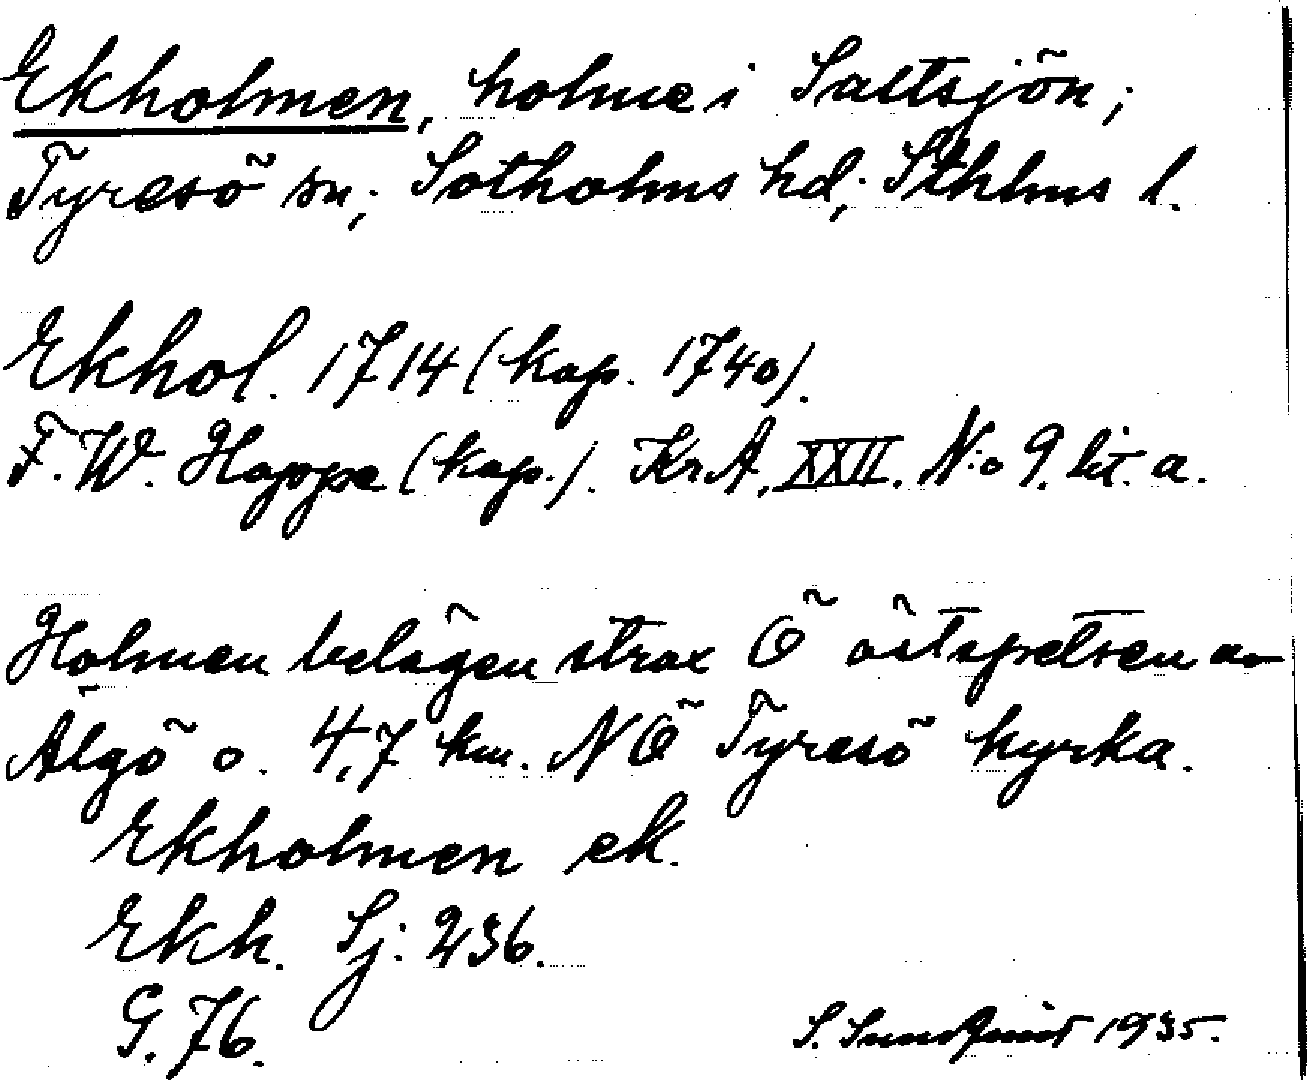 Ekholmen, holme i Saltsjön;
Tyresö sn; Sotholms hd; Sthlms l.
Ekhol. 1714 (kop. 1740).
F. W. Hoppe (kop.). KrA, XXII. N:o 9. lit. a.
Holmen belägen strax Ö östspetsen av
Älgö o. 4,7 km. NÖ Tyresö kyrka.
Ekholmen ek.
Ekh. Sj: 236.
G. 76.
S. Sundquist 1935.